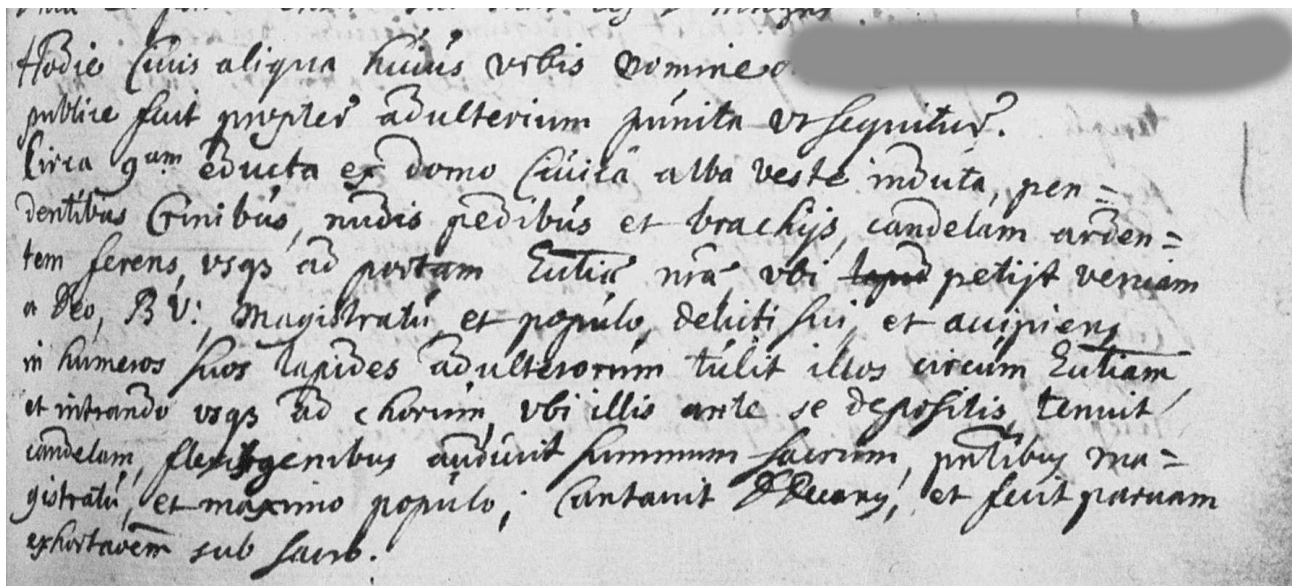 Hodie Civis aliqua huius vrbis Nomine
publice fuit propter adulterium punita vt sequitur.
Circa 9am educta ex domo Civica alba veste induta, pen=
dentibus Crinibus, nudis pedibus et brachijs, candelam arden=
tem ferens, vsqȝ ad portam Eccliæ nrā vbi petijt veniam
a Deo, B V:, Magistratu, et populo, delicti sui, et accipiens
in humeros suos lapides adulterorum tulit illos circum Eccliam,
et intrando vsqȝ ad chorum, vbi illis ante se depositis, tenuit
candelam, flexis genibus audivit summum sacrum, pntibus ma=
gistratu, et maximo populo; Cantavit Decany, et fecit parvam
exhortaoēm sub sacro.